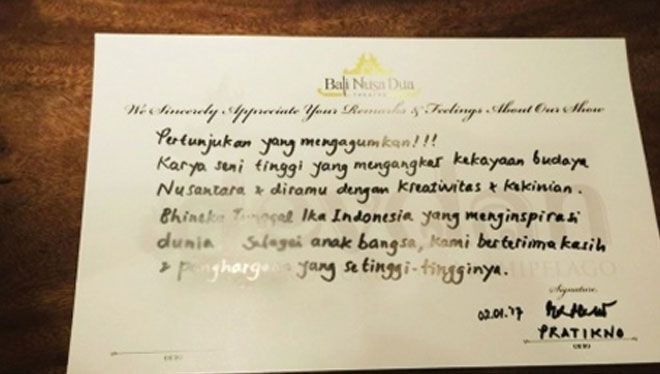 Bali Nusa Dua
THEATRE
We Sincerely Appreciate Your Remarks & Feelings About Our Show
Pertunjukan yang mengagumkan!!!
Karya seni tinggi yang mengangkat kekayaan budaya
Nusantara & diramu dengan kreativitas & kekinian.
Bhineka Tunggal Ika Indonesia yang menginspirasi
dunia Sebagai anak bangsa, kami berterima kasih
& penghargaan yang setinggi-tingginya.
Signature,
02.01.17
PRATIKNO